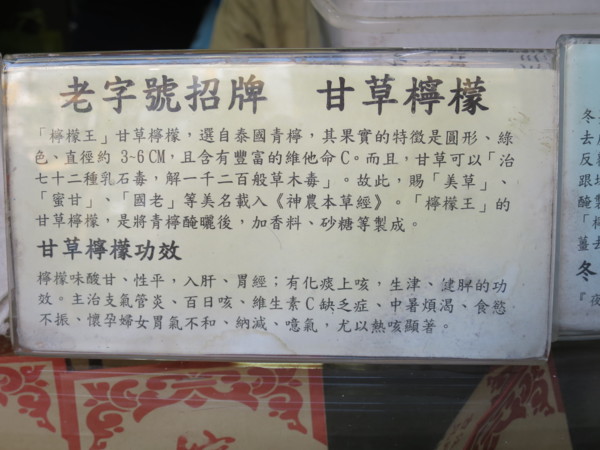 老字號招牌 甘草檸檬
「檸檬王」甘草檸檬,選自泰國青檸,其果實的特徵是圓形、綠
色、直徑約 3~6CM,且含有豐富的維他命C。而且,甘草可以「治
七十二種乳石毒,解一千二百般草木毒」。故此,賜「美草」、
「蜜甘」、「國老」等美名載入《神農本草經》。「檸檬王」的
甘草檸檬,是將青檸醃曬後,加香料、砂糖等製成。
甘草檸檬功效
檸檬味酸甘、性平,入肝、胃經;有化痰上咳,生津、健脾的功
效。主治支氣管炎、百日咳、維生素C缺乏症、中暑煩渴、食慾
不振、懷孕婦女胃氣不和、納減、噫氣,尤以熱咳顯著。
冬
去
反
跟
醃製
「檸
薑去
冬
『夜